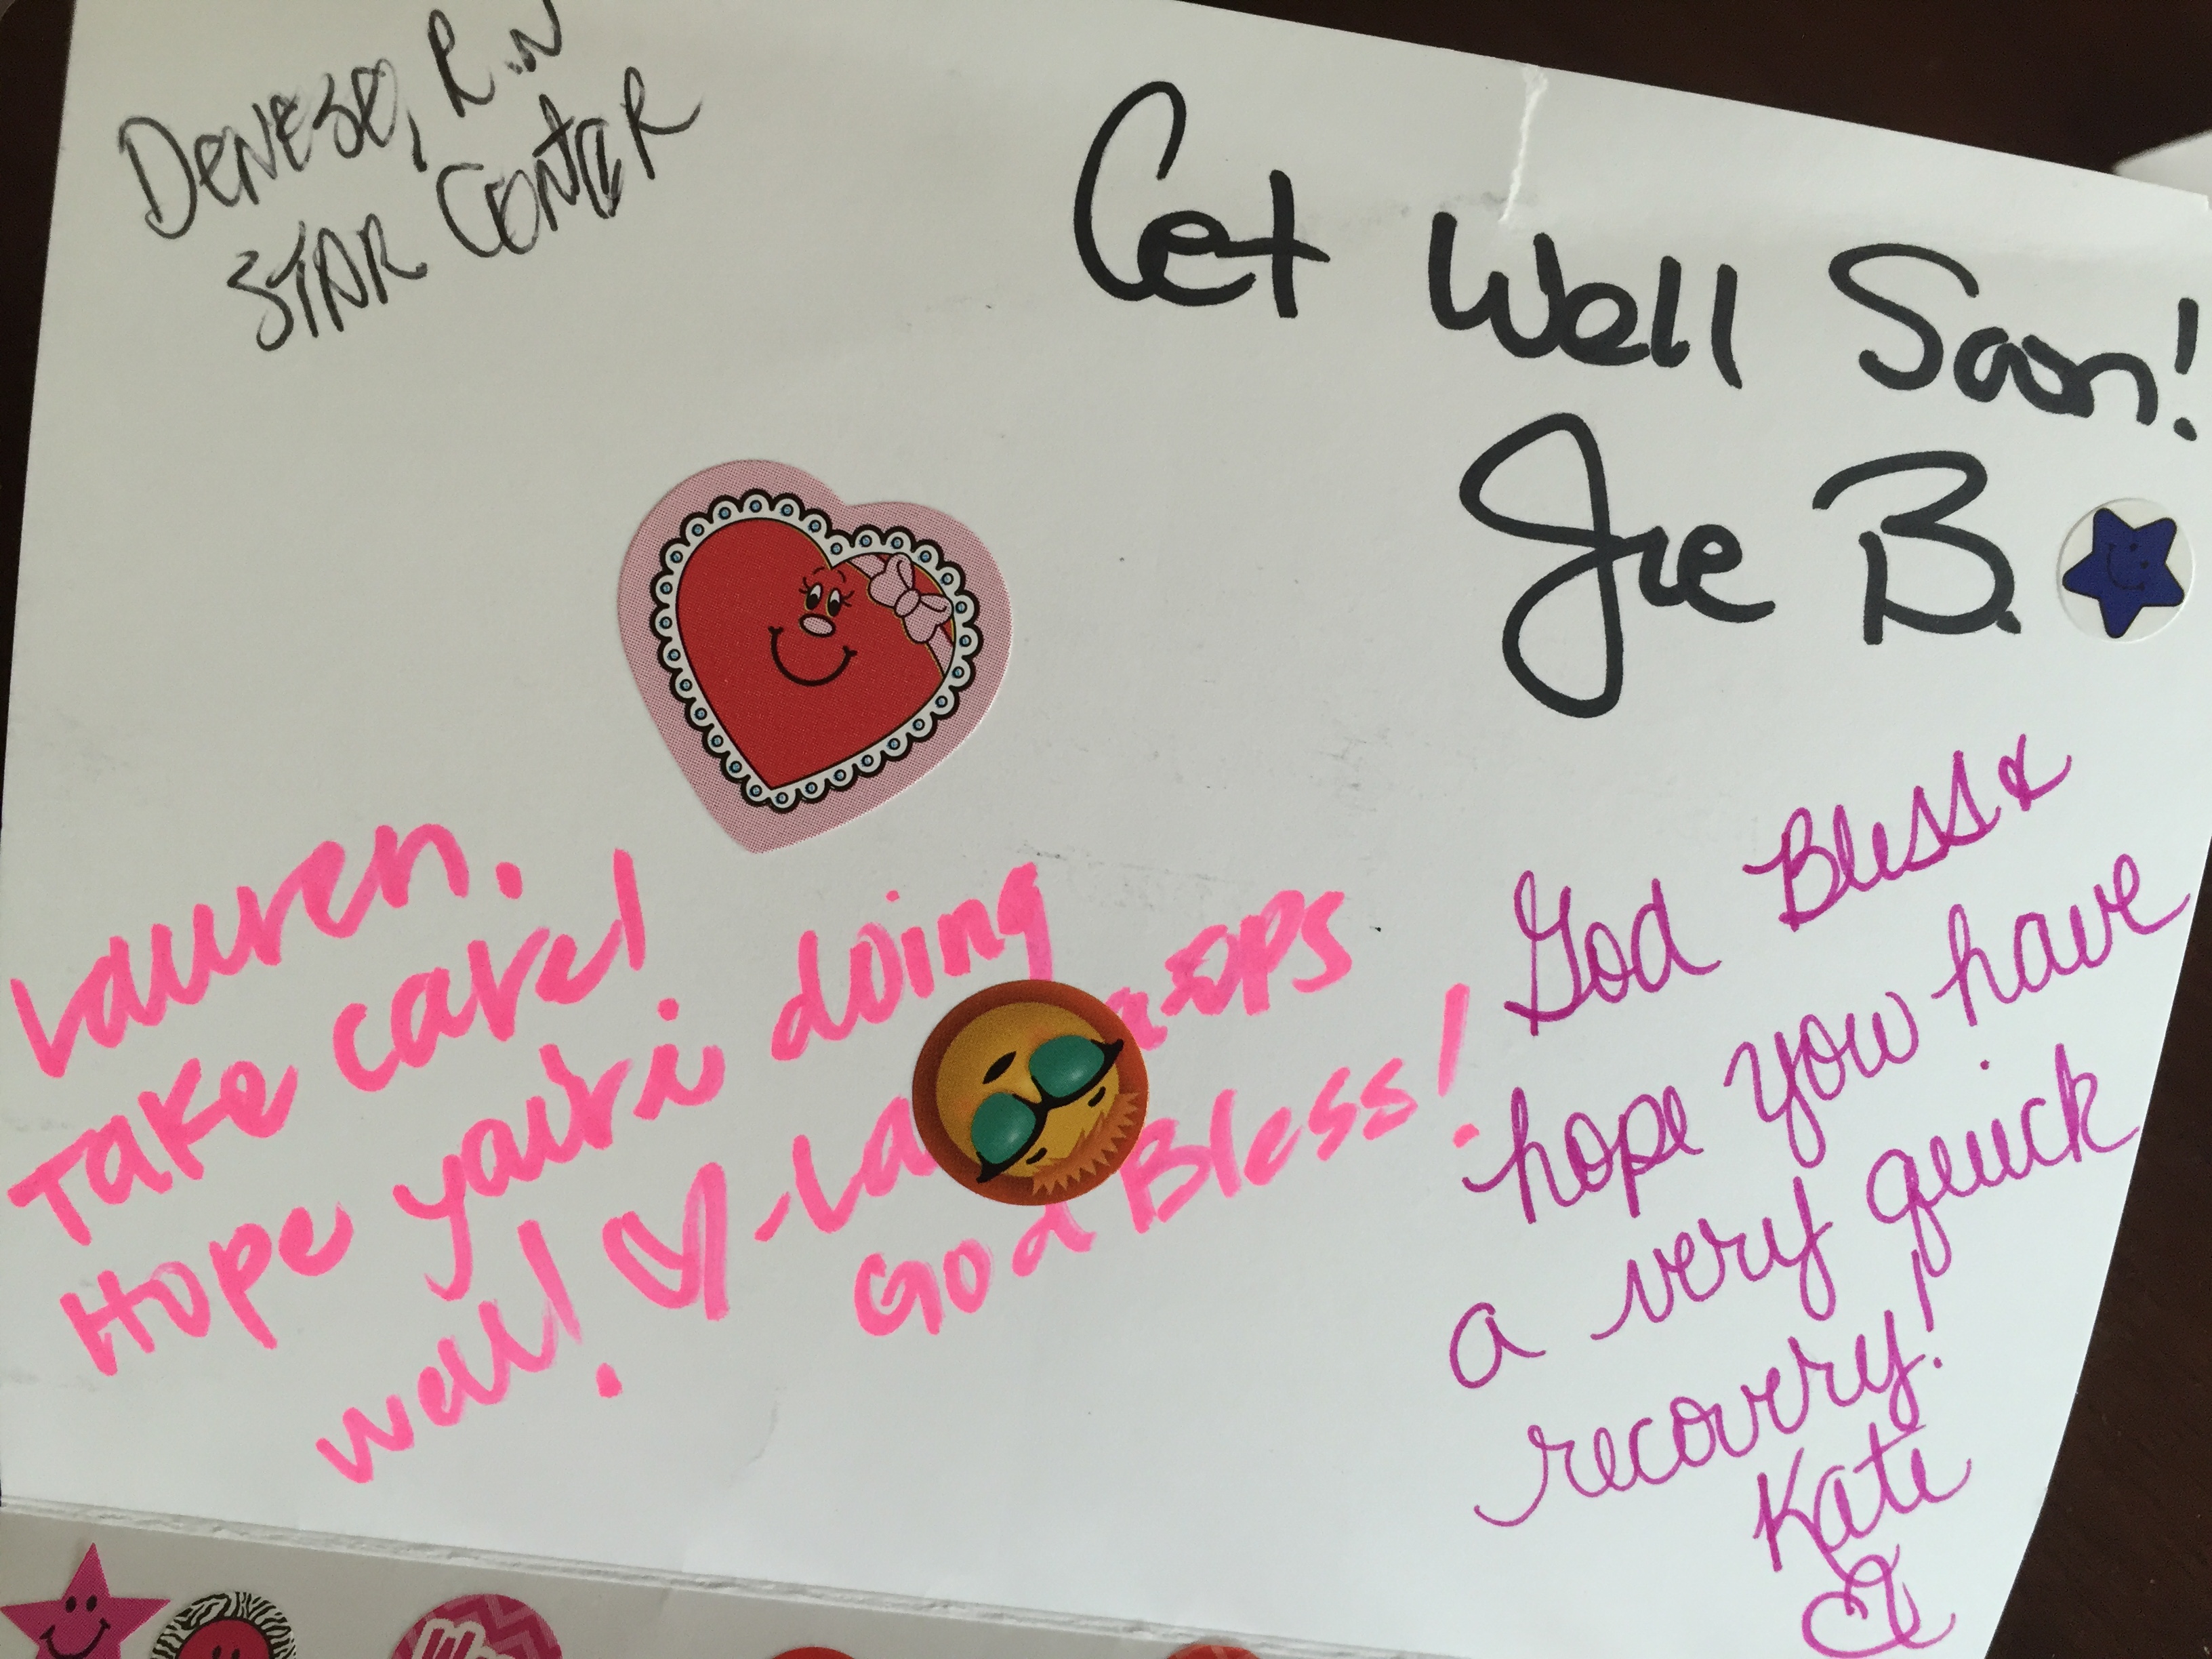 Denese, R.N
STAR CENTER
Get Well Soon!
Joe B.
Lauren,
Take care!
Hope you're doing
well! ♡ -La a-OPS
God Bless!
God Bless &
hope you have
a very quick
recovery!
Kate